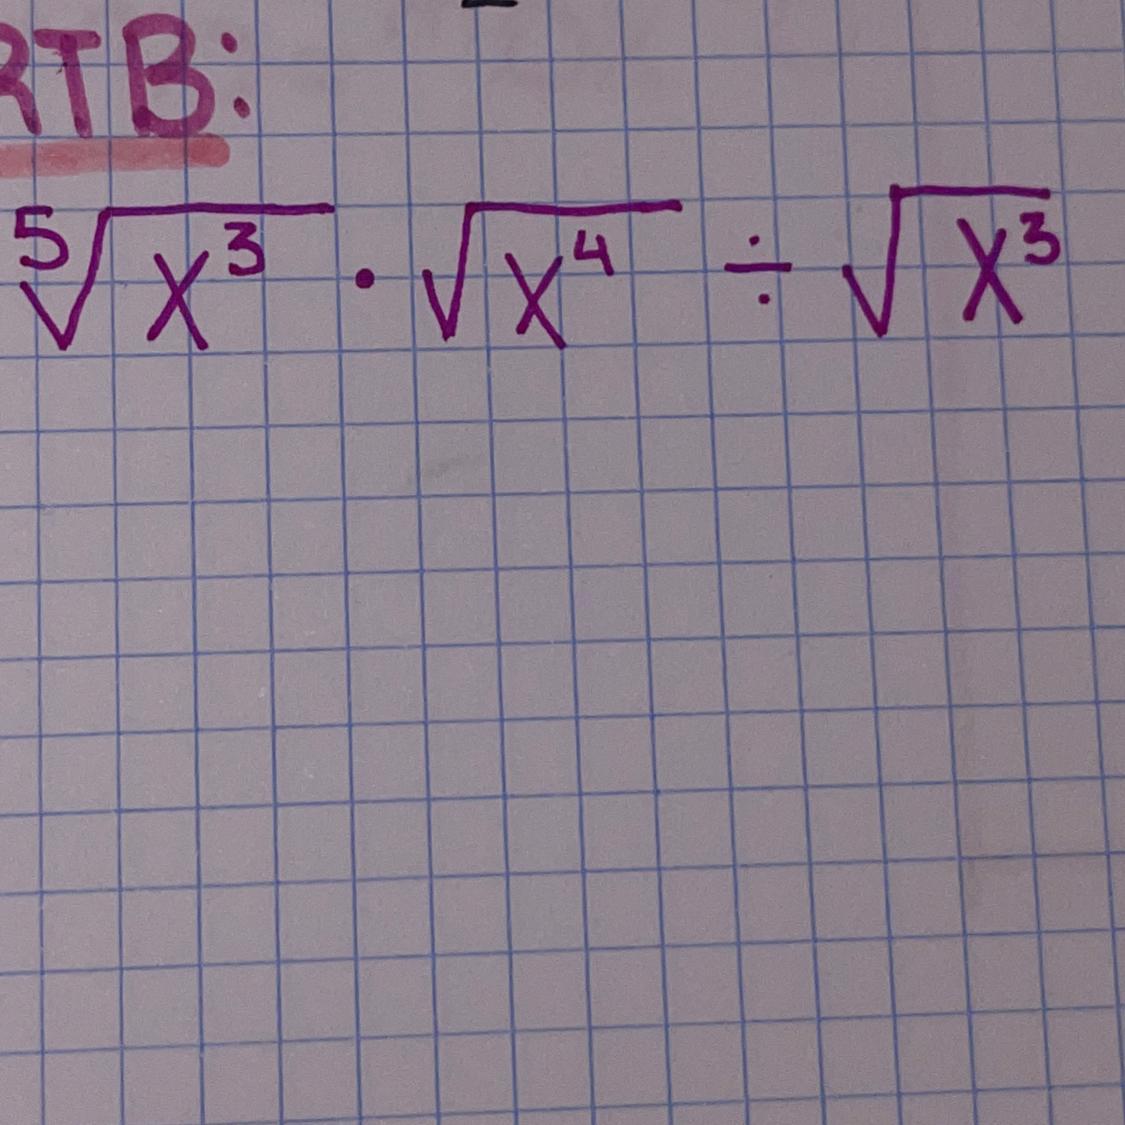 RT B:
⁵√x³ · √x⁴ ÷ √x³